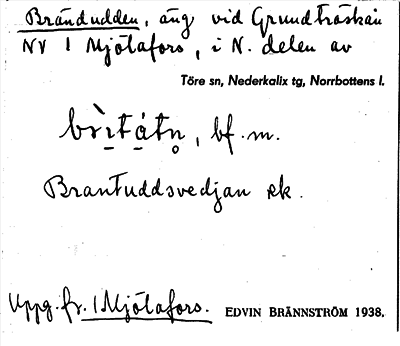 Brändudden, äng vid Grundträskån
NV 1 Mjölafors, i N. delen av
Töre sn, Nederkalix tg, Norrbottens l.
bf. m.
Brantuddsvedjan ek.
Uppg. fr. 1 Mjölafors. EDVIN BRÄNNSTRÖM 1938.